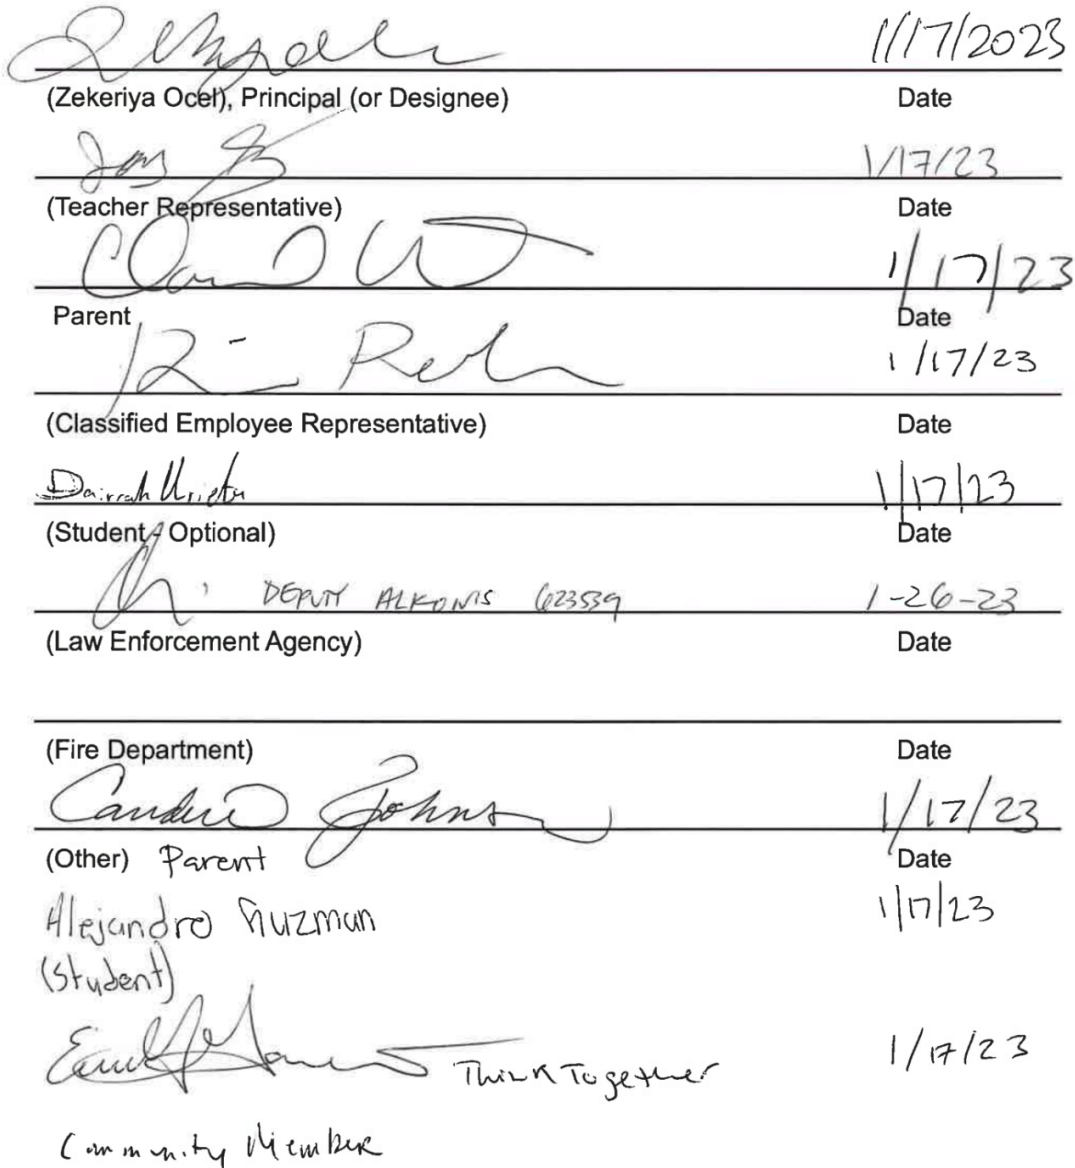 1/17/2023
(Zekeriya Ocel), Principal (or Designee) Date
1/17/23
(Teacher Representative) Date
1/17/23
Parent Date
1/17/23
(Classified Employee Representative) Date
1/17/23
(Student - Optional) Date
DEPUTY ALKONIS 623539 1-26-23
(Law Enforcement Agency) Date
(Fire Department) Date
Candice Johnson 1/17/23
(Other) Parent Date
Alejandro Guzman 1/17/23
(Student)
Think Together 1/17/23
Community Member